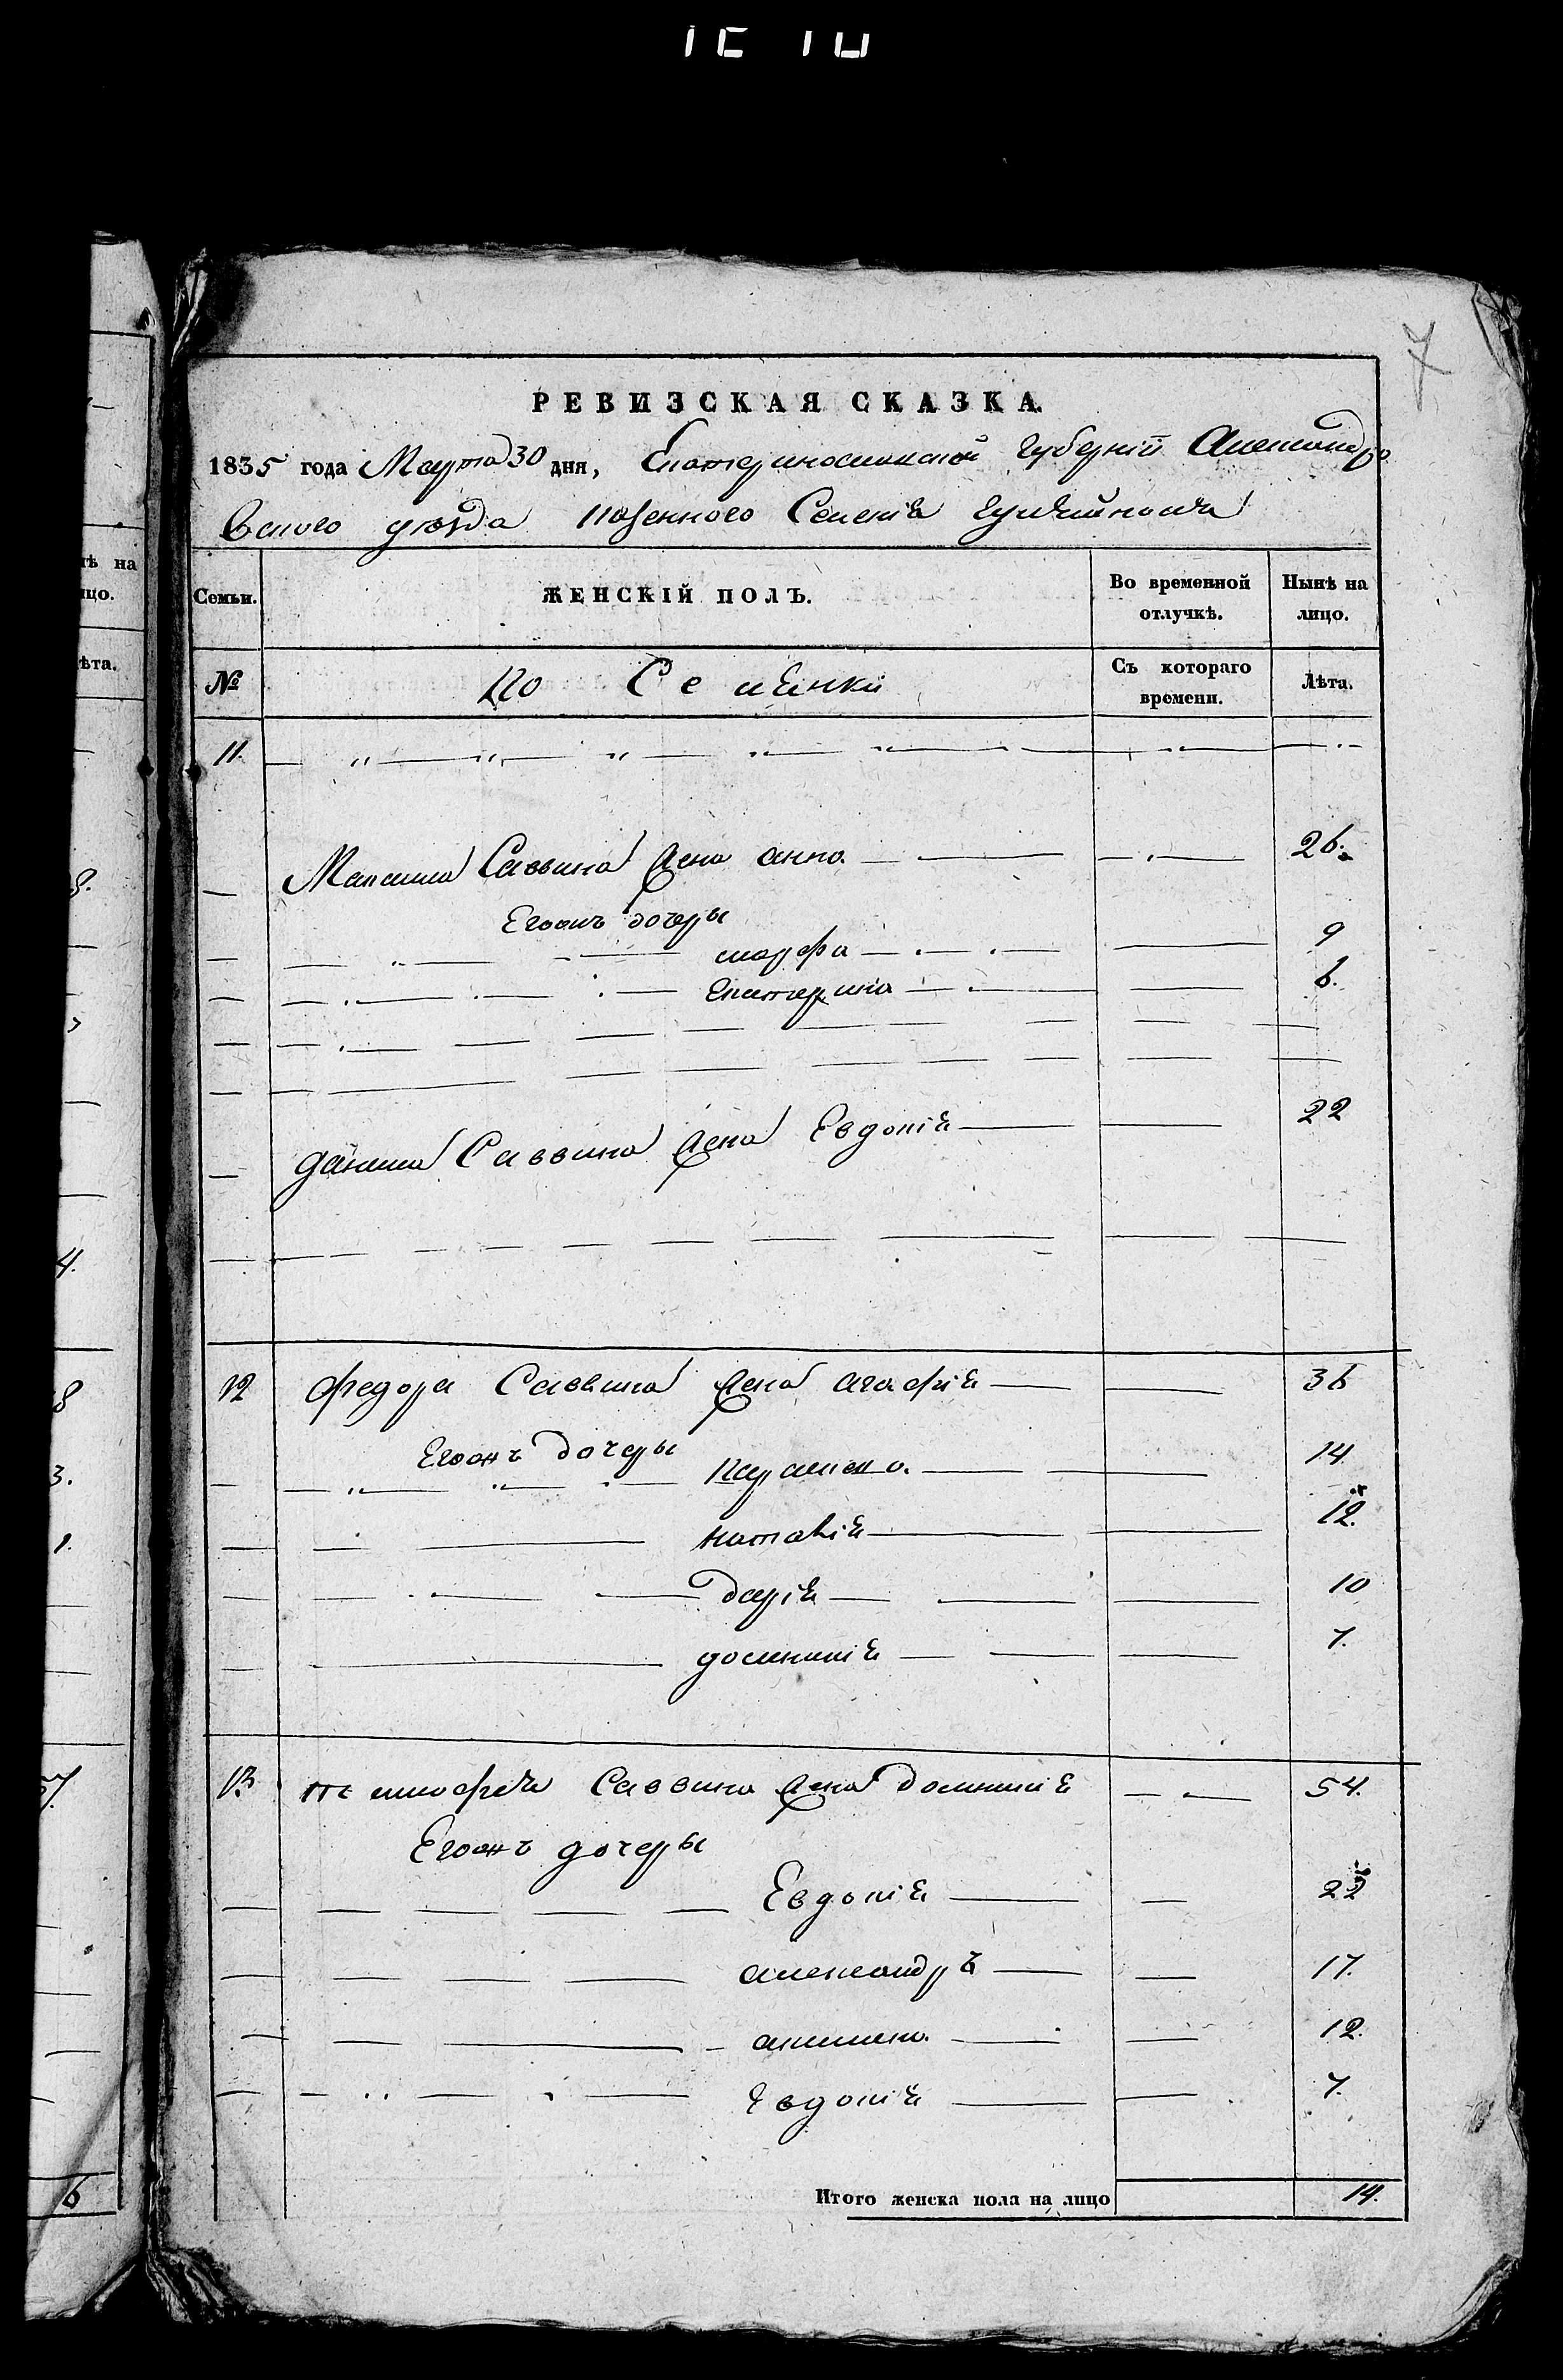 7
РЕВИЗСКАЯ СКАЗКА.
1835 года Марта 30 дня, Екатеринославской Губерніи Александро
вского уезда казенного Селенія
Семьи. ЖЕНСКІЙ ПОЛЪ. Во временной отлучкѣ. Нынѣ на лицо.
№ Съ котораго времени. Лѣта.
11.
Максима Саввина жена анна 26.
Егожъ дочеры
марфа 9
Екатерина 6.
данила Саввина жена Евдокія 22
12 федора Саввина жена агафія 36
Егожъ дочеры
Параскева 14
наталія 12.
дарія 10
домникія 7.
13 тимофея Саввина жена домникія 54.
Егожъ дочеры
Евдокія 22
александра 17.
акилина 12.
Евдокія 7.
Итого женска пола на лицо 14.